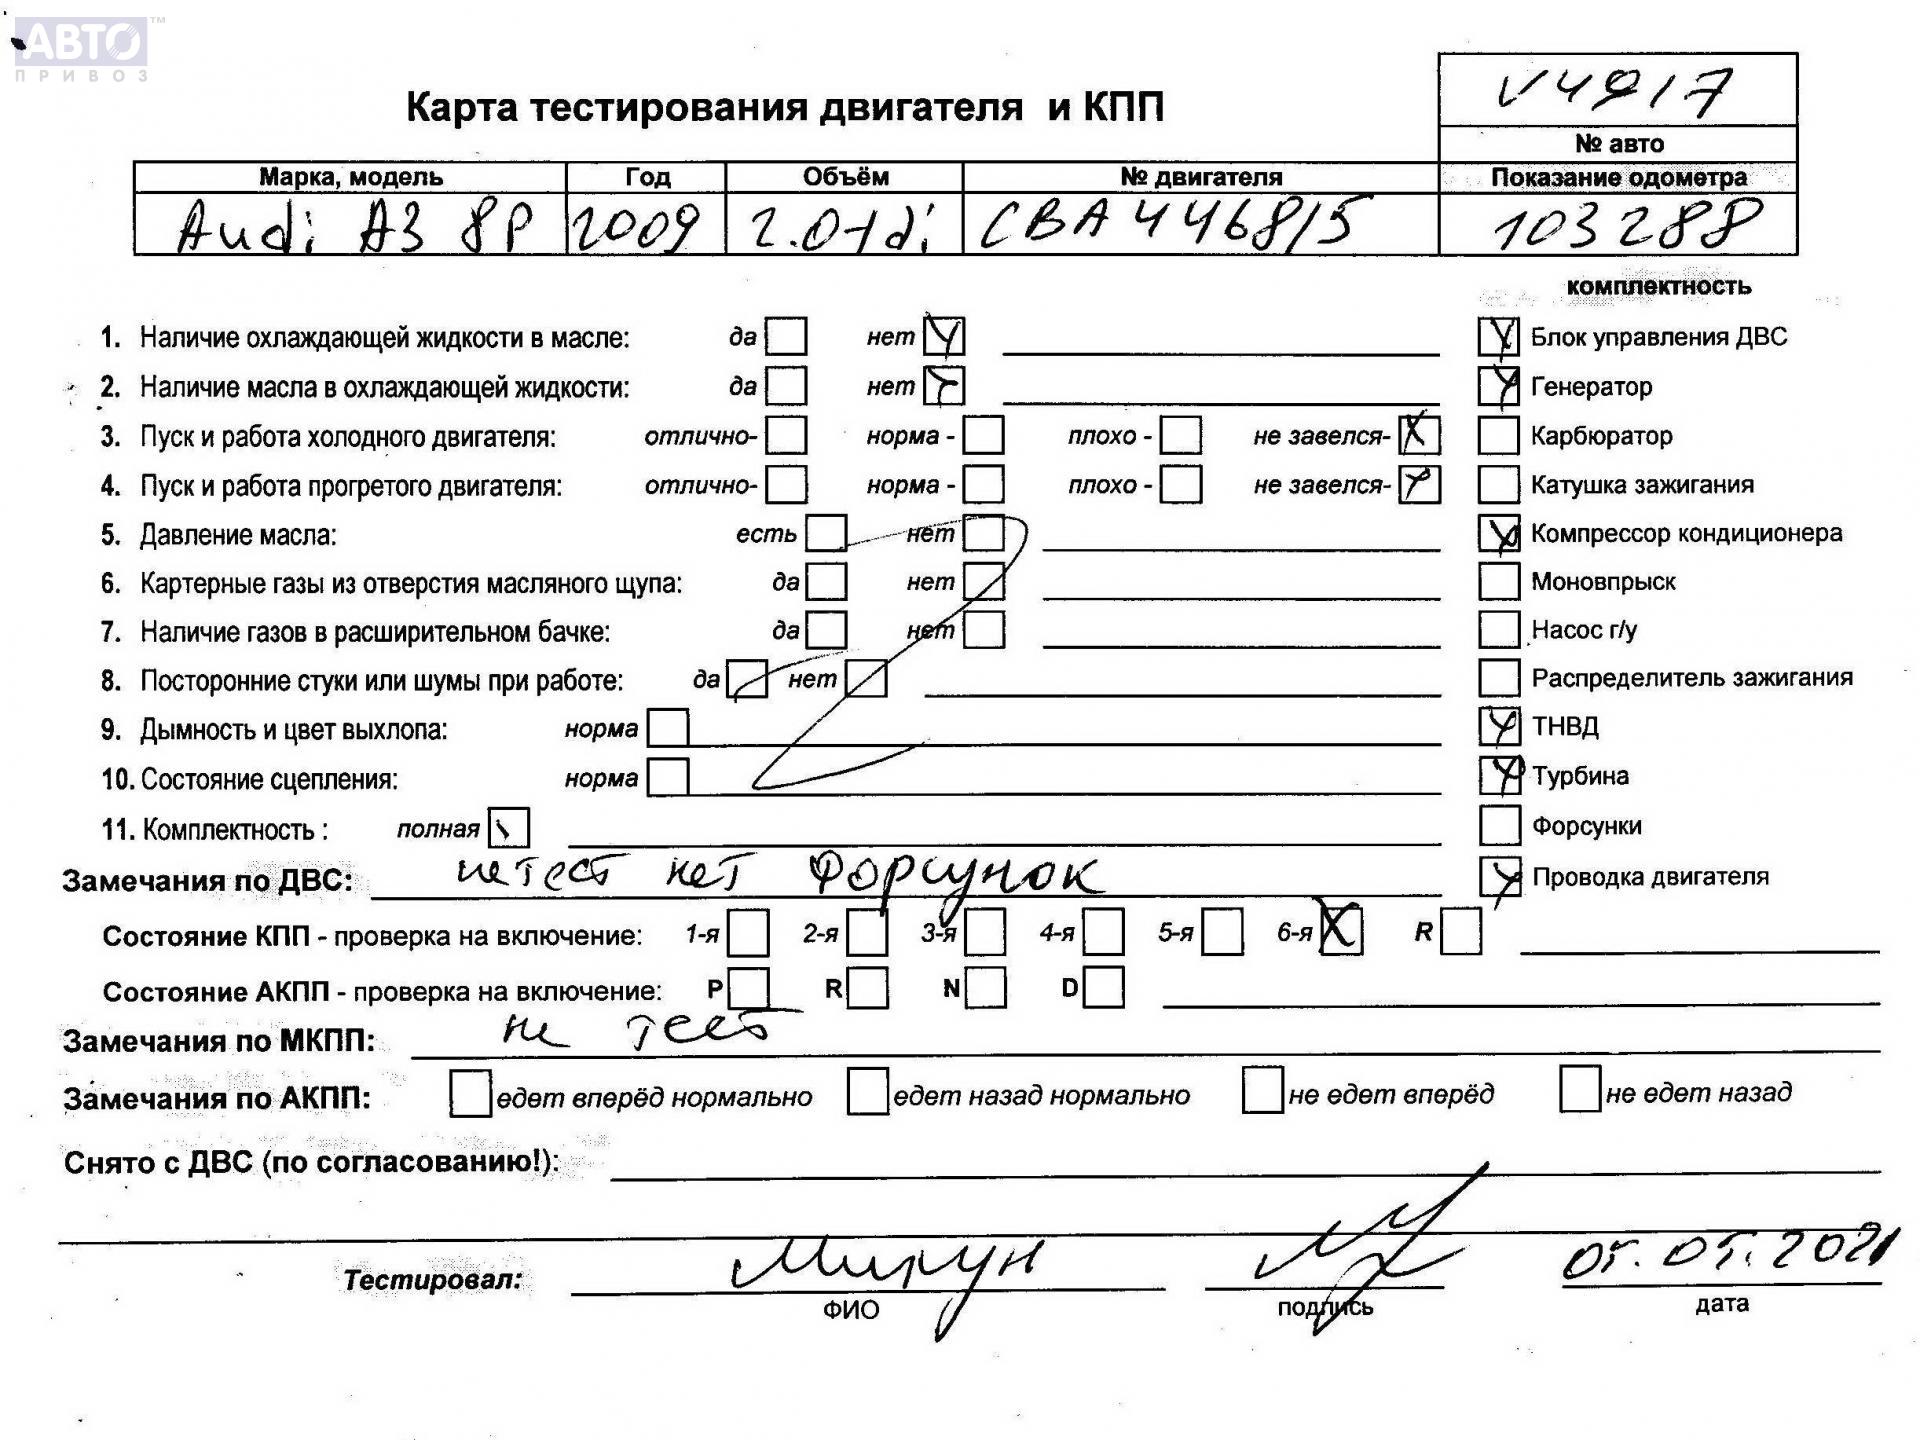 АВТО™
ПРИВОЗ
V4917
Карта тестирования двигателя и КПП
№ авто
Марка, модель Год Объём № двигателя Показание одометра
Audi A3 8P 2009 2.0tdi CBA446815 103288
комплектность
1. Наличие охлаждающей жидкости в масле: да нет Блок управления ДВС
2. Наличие масла в охлаждающей жидкости: да нет Генератор
3. Пуск и работа холодного двигателя: отлично- норма - плохо - не завелся- Карбюратор
4. Пуск и работа прогретого двигателя: отлично- норма - плохо - не завелся- Катушка зажигания
5. Давление масла: есть нет Компрессор кондиционера
6. Картерные газы из отверстия масляного щупа: да нет Моновпрыск
7. Наличие газов в расширительном бачке: да нет Насос г/у
8. Посторонние стуки или шумы при работе: да нет Распределитель зажигания
9. Дымность и цвет выхлопа: норма ТНВД
10. Состояние сцепления: норма Турбина
11. Комплектность : полная Форсунки
Замечания по ДВС: не тест нет форсунок Проводка двигателя
Состояние КПП - проверка на включение: 1-я 2-я 3-я 4-я 5-я 6-я R
Состояние АКПП - проверка на включение: P R N D
Замечания по МКПП: не тест
Замечания по АКПП: едет вперёд нормально едет назад нормально не едет вперёд не едет назад
Снято с ДВС (по согласованию!):
Тестировал: 05.05.2021
ФИО подпись дата